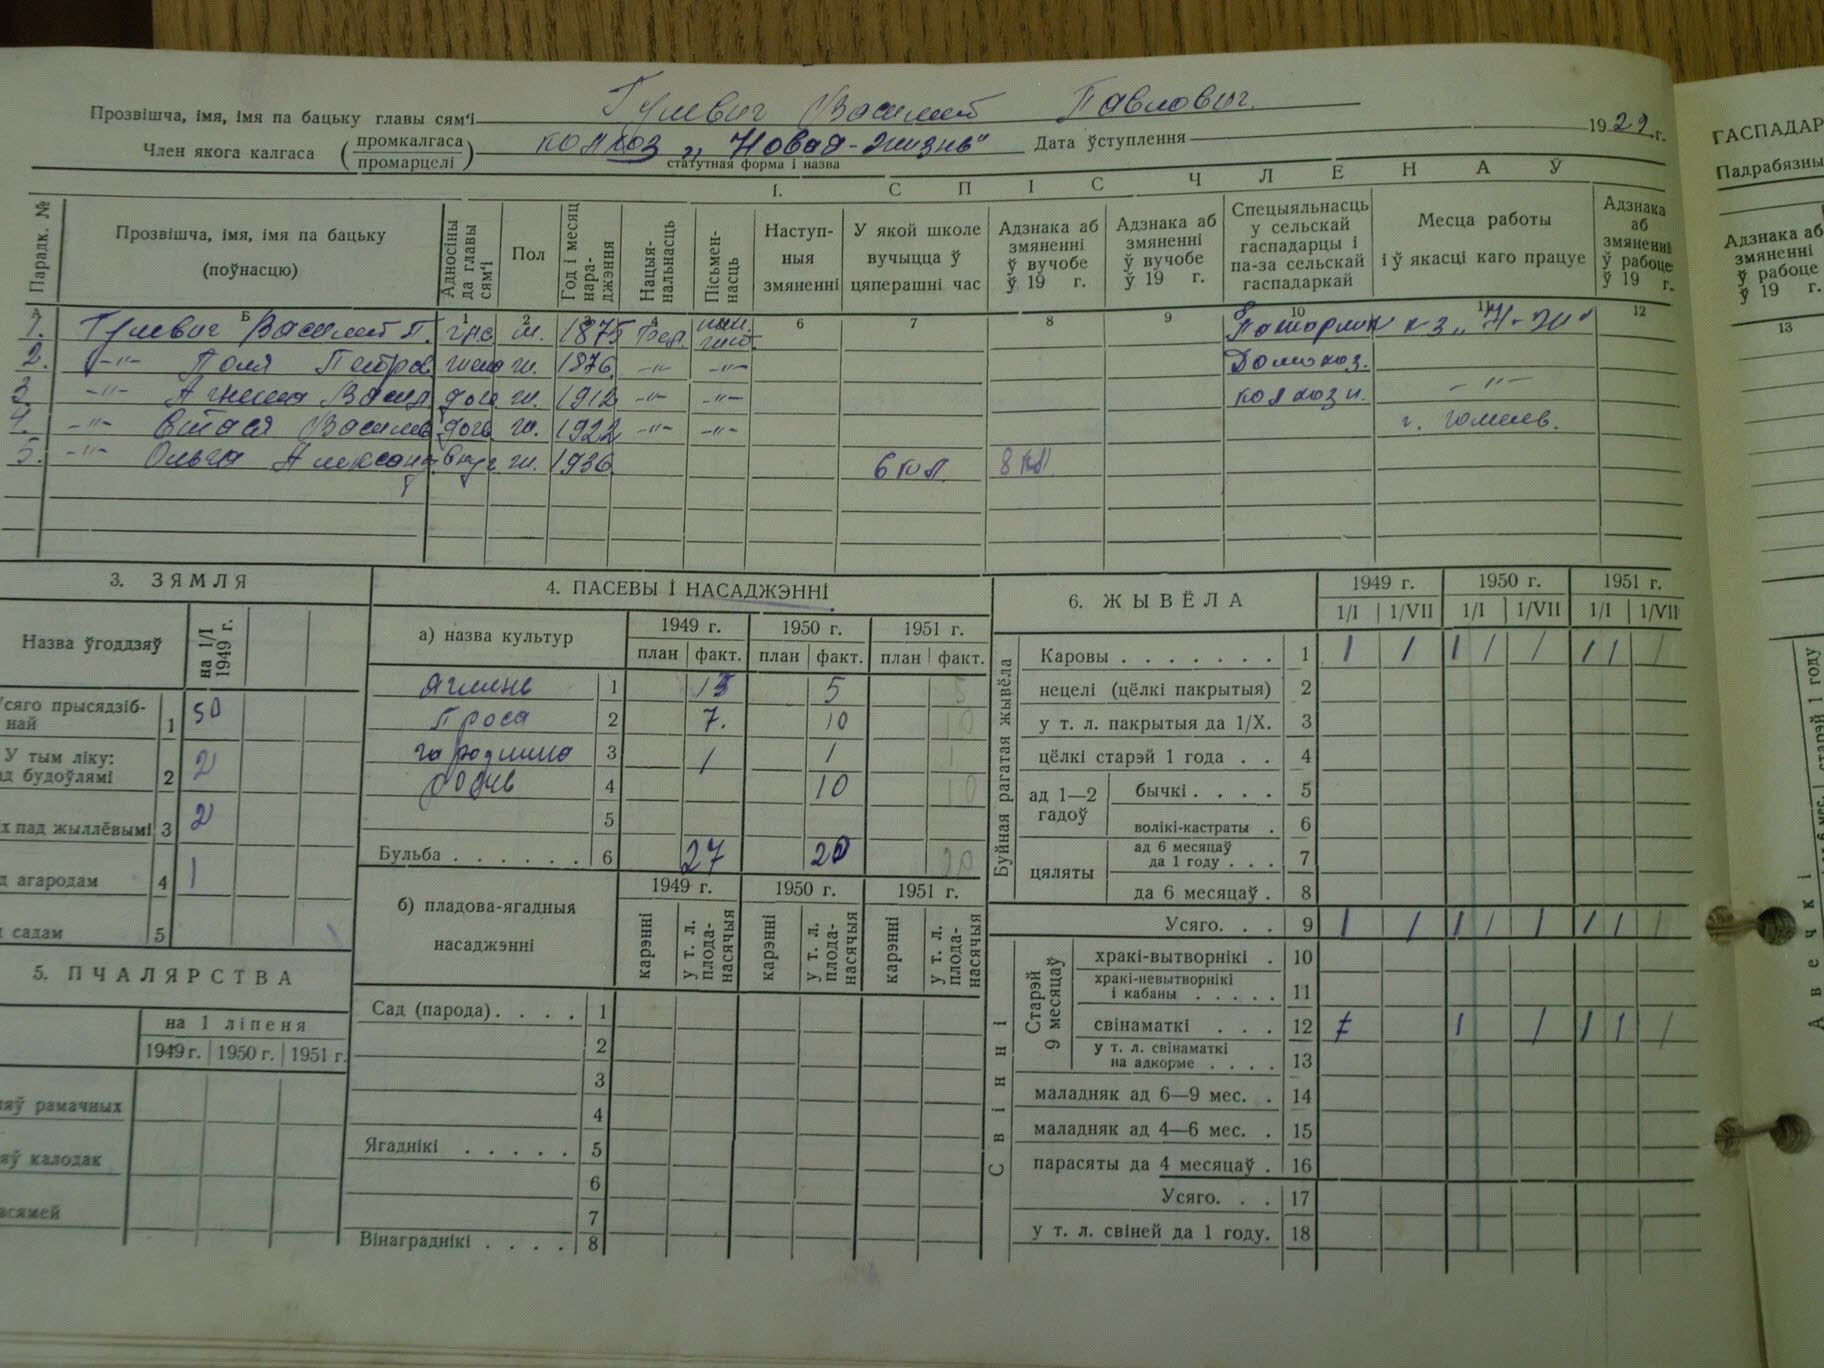 Прозвішча, імя, імя па бацьку главы сям'і Гулевич Василий Павлович
Член якога калгаса (промкалгаса промарцелі) колхоз „Новая-жизнь" Дата ўступлення 1929 г.
статутная форма і назва
I. СПІС ЧЛЕНАЎ
Парадк. № | Прозвішча, імя, імя па бацьку (поўнасцю) | Адносіны да главы сям'і | Пол | Год і месяц нараджэння | Нацыянальнасць | Пісьменнасць | Наступныя змяненні | У якой школе вучыцца ў цяперашні час | Адзнака аб змяненні ў вучобе ў 19 г. | Адзнака аб змяненні ў вучобе ў 19 г. | Спецыяльнасць у сельскай гаспадарцы і па-за сельскай гаспадаркай | Месца работы і ў якасці каго працуе | Адзнака аб змяненні ў рабоце ў 19 г.
А Б 1 2 3 4 5 6 7 8 9 10 11 12
1. Гулевич Василий П. м. 1875
2. -"- Поля Петров ж. 1876 -"- -"- Домохоз.
3. -"- Агнеша Васил ж. 1912 -"- -"- колхозн. -"-
4. -"- Стася Василев ж. 1922 -"- -"- г. Гомель.
5. -"- Ольга Александр ж. 1936 6 кл. 8 кл.
3. ЗЯМЛЯ
Назва ўгоддзяў | на 1/I 1949 г.
Усяго прысядзібнай 1 50
У тым ліку: будоўлямі 2 2
пад жыллёвымі 3 2
агародам 4 1
садам 5
5. ПЧАЛЯРСТВА
на 1 ліпеня
1949 г. | 1950 г. | 1951 г.
рамачных
калодак
4. ПАСЕВЫ І НАСАДЖЭННІ
а) назва культур | 1949 г. | 1950 г. | 1951 г.
план | факт. | план | факт. | план | факт.
Ячмень 1 15 5 5
Проса 2 7. 10 10
гародніна 3 1 1 1
4 10 10
5
Бульба . . . . . . 6 27 20 20
б) пладова-ягадныя насаджэнні | 1949 г. | 1950 г. | 1951 г.
карэнні | у т. л. плоданасячыя | карэнні | у т. л. плоданасячыя | карэнні | у т. л. плоданасячыя
Сад (парода) . . . . 1
2
3
4
Ягаднікі . . . . . 5
6
7
Вінаграднікі . . . . 8
6. ЖЫВЁЛА | 1949 г. | 1950 г. | 1951 г.
1/I | 1/VII | 1/I | 1/VII | 1/I | 1/VII
Буйная рагатая жывёла
Каровы . . . . . . . 1 1 1 1 1 1 1 1 1
нецелі (цёлкі пакрытыя) 2
у т. л. пакрытыя да 1/X. 3
цёлкі старэй 1 года . . 4
ад 1—2 гадоў
бычкі . . . . 5
волікі-кастраты . 6
цяляты
ад 6 месяцаў да 1 году . . . 7
да 6 месяцаў . 8
Усяго. . . 9 1 1 1 1 1 1 1 1
Свінні
Старэй 9 месяцаў
хракі-вытворнікі . 10
хракі-невытворнікі і кабаны . . . . . 11
свінаматкі . . . 12 1 1 1 1 1
у т. л. свінаматкі на адкорме . . . . 13
маладняк ад 6—9 мес. . 14
маладняк ад 4—6 мес. . 15
парасяты да 4 месяцаў . 16
Усяго. . . 17
у т. л. свіней да 1 году. 18
Падрабязны
Адзнака аб змяненні ў рабоце ў 19 г.
13
Авечкі
старэй 1 году